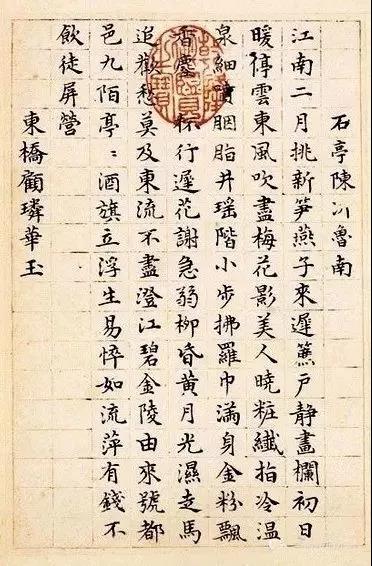 石亭陳沂魯南
江南二月挑新笋燕子來遲簾戶静畫欄初日
暖停雲東風吹盡梅花影美人曉粧纖指冷温
泉細噴胭脂井瑶階小步拂羅巾滿身金粉飄
香塵杯行遲花謝急弱柳昏黄月光濕走馬
追歡愁莫及東流不盡澄江碧金陵由來號都
邑九陌亭〻酒旗立浮生易悴如流萍有錢不
飲徒屏營
東橋顧璘華玉